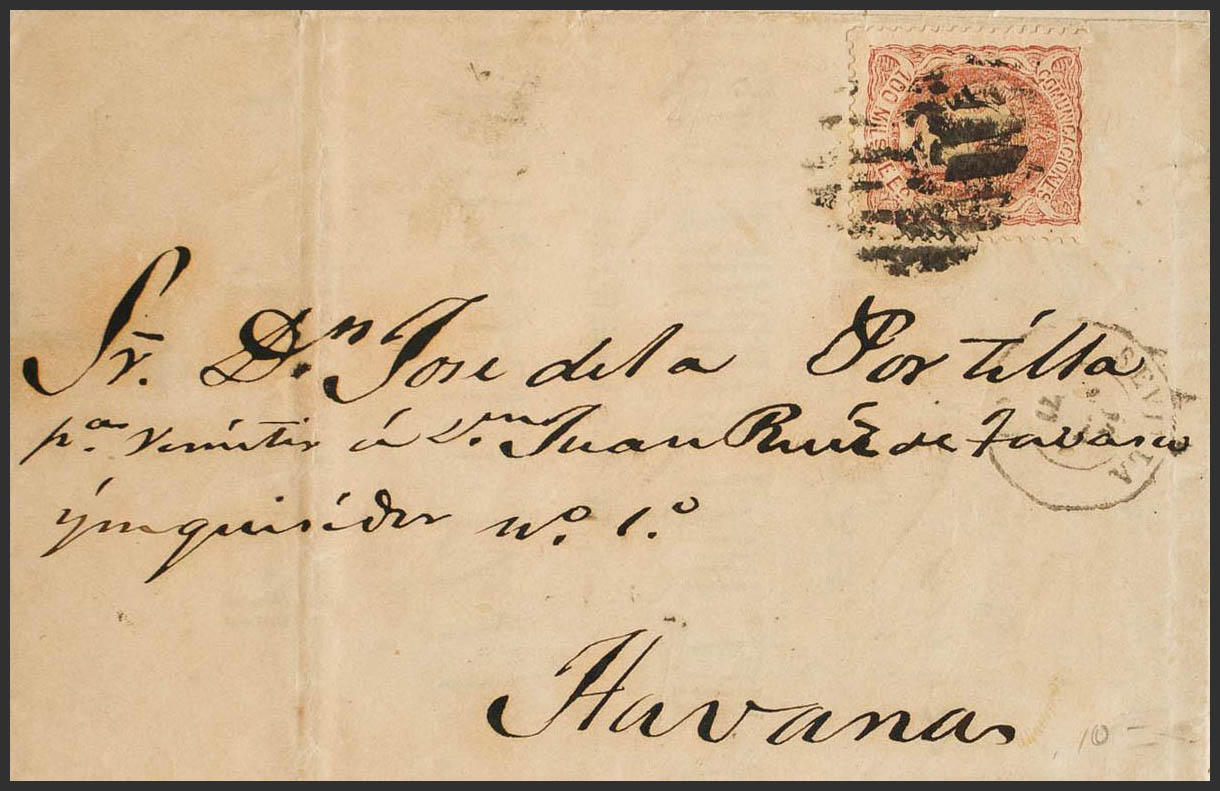 COMUNICACIONES
100 MILS DE E
Sr. Dn Jose de la Portilla
SEVILLA
pa. remitir á Dn Juan Ruiz de
ynquisidor no. 1.o
Havana
10